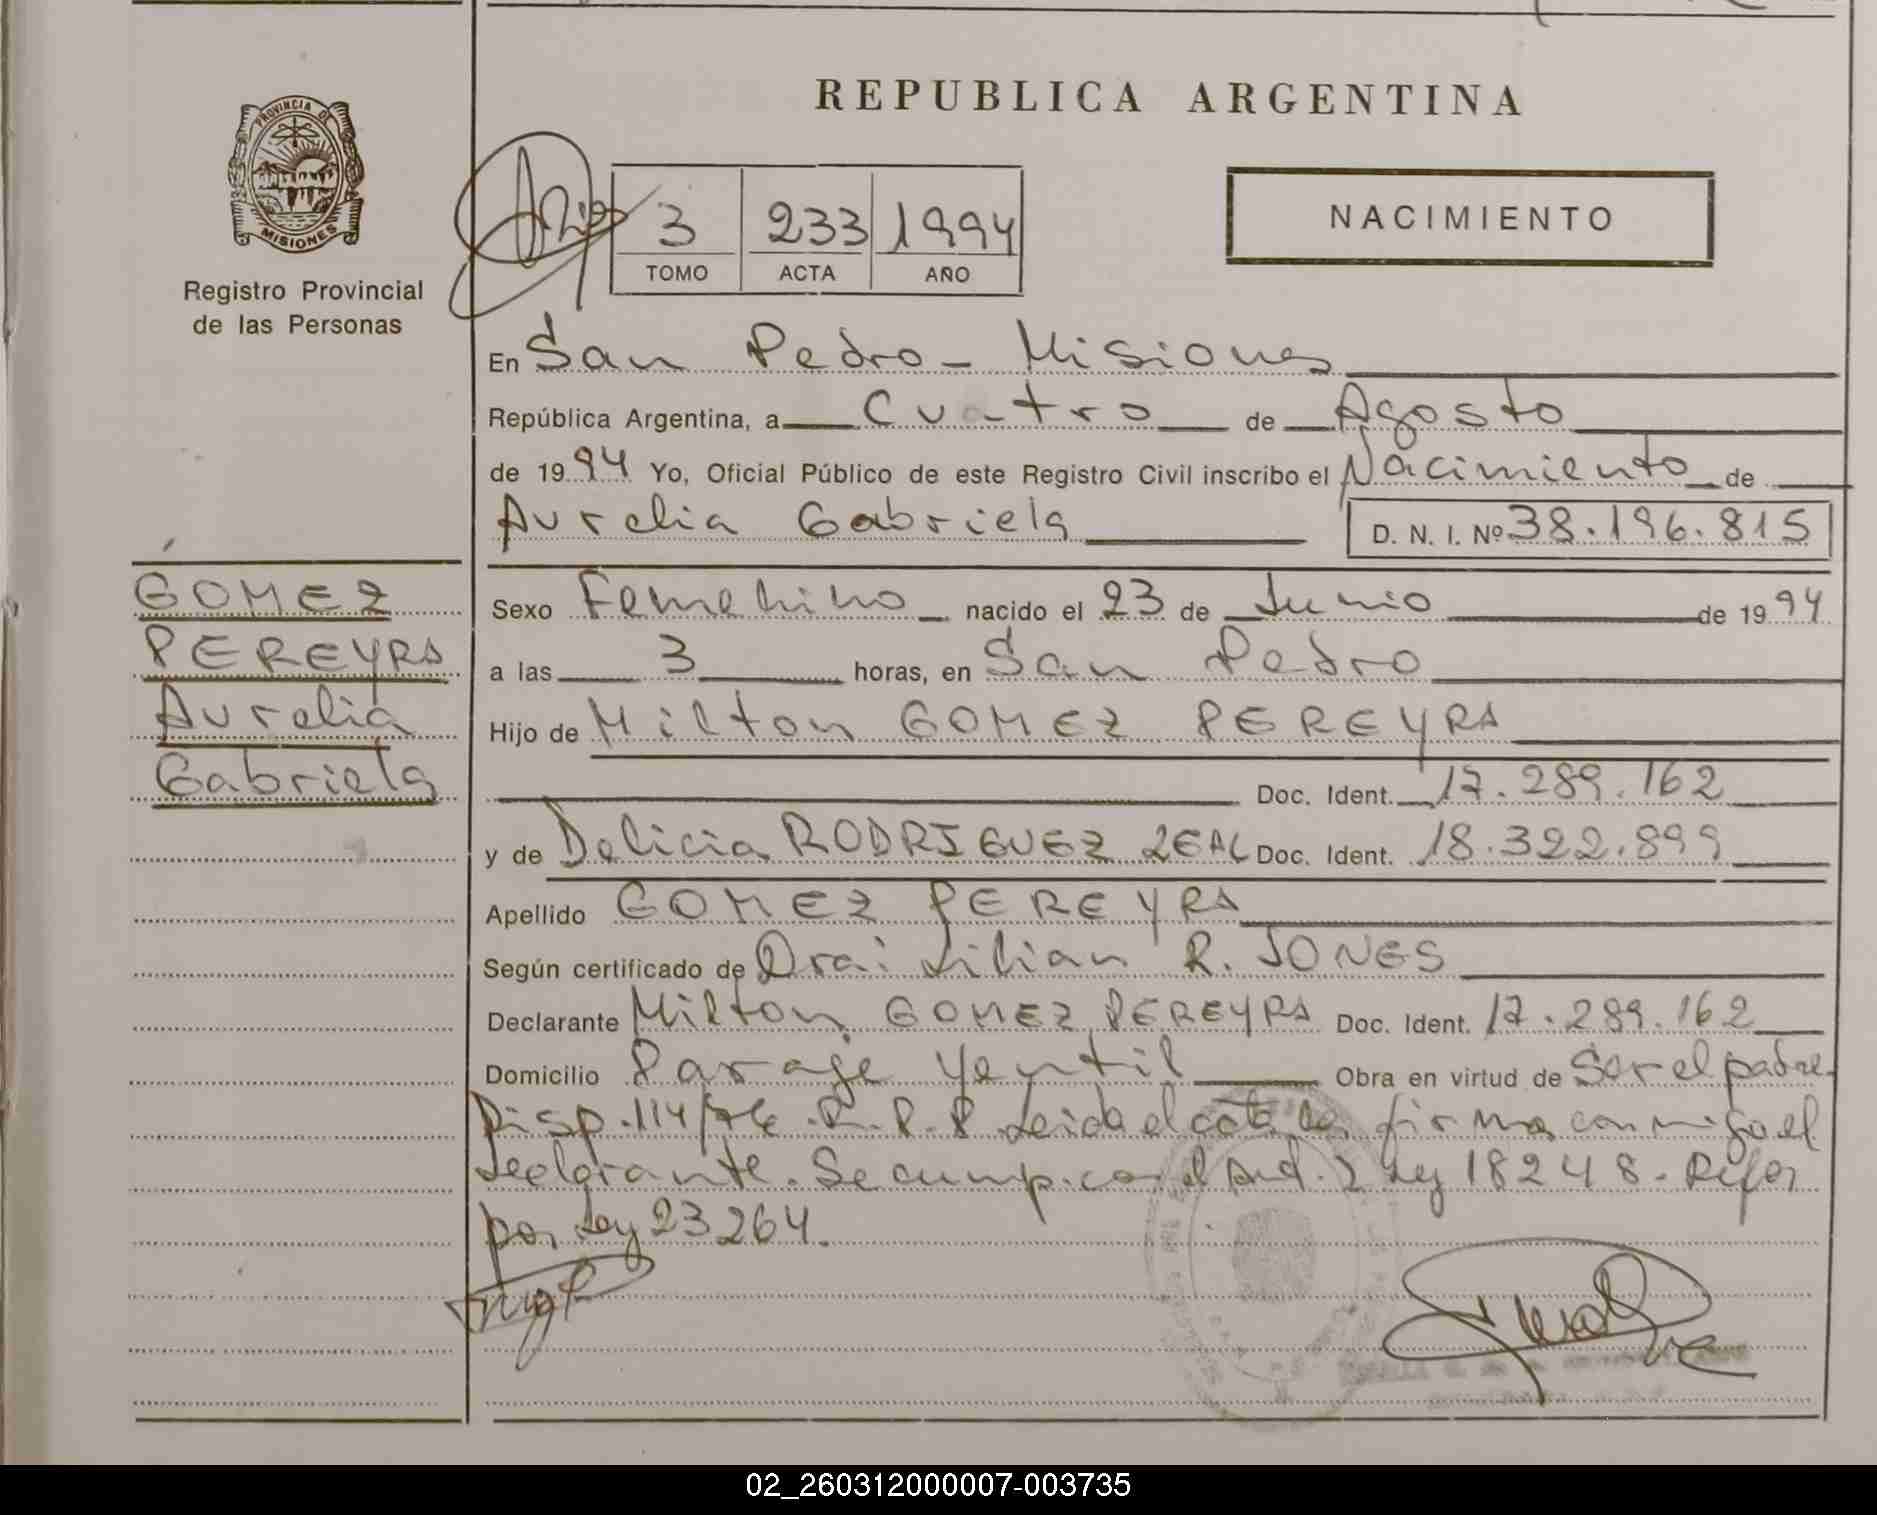 REPUBLICA ARGENTINA
PROVINCIA DE
MISIONES
Registro Provincial
de las Personas
3 233 1994
TOMO ACTA AÑO
NACIMIENTO
En San Pedro - Misiones
República Argentina, a Cuatro de Agosto
de 1994 Yo, Oficial Público de este Registro Civil inscribo el Nacimiento de
Aurelia Gabriela D. N. I. Nº 38.196.815
GOMEZ
PEREYRA
Aurelia
Gabriela
Sexo Femenino nacido el 23 de Junio de 1994
a las 3 horas, en San Pedro
Hijo de Milton GOMEZ PEREYRA
Doc. Ident. 17.289.162
y de Delicia RODRIGUEZ LEAL Doc. Ident. 18.322.899
Apellido GOMEZ PEREYRA
Según certificado de Dra: Lilian R. JONES
Declarante Milton GOMEZ PEREYRA Doc. Ident. 17.289.162
Domicilio Paraje Yentil Obra en virtud de Ser el padre.
Disp. 114/76 R.P.P. Leida el acta firma conmigo el
declarante. Se cump. con el Ley 18248.
por Ley 23264.
02_260312000007-003735